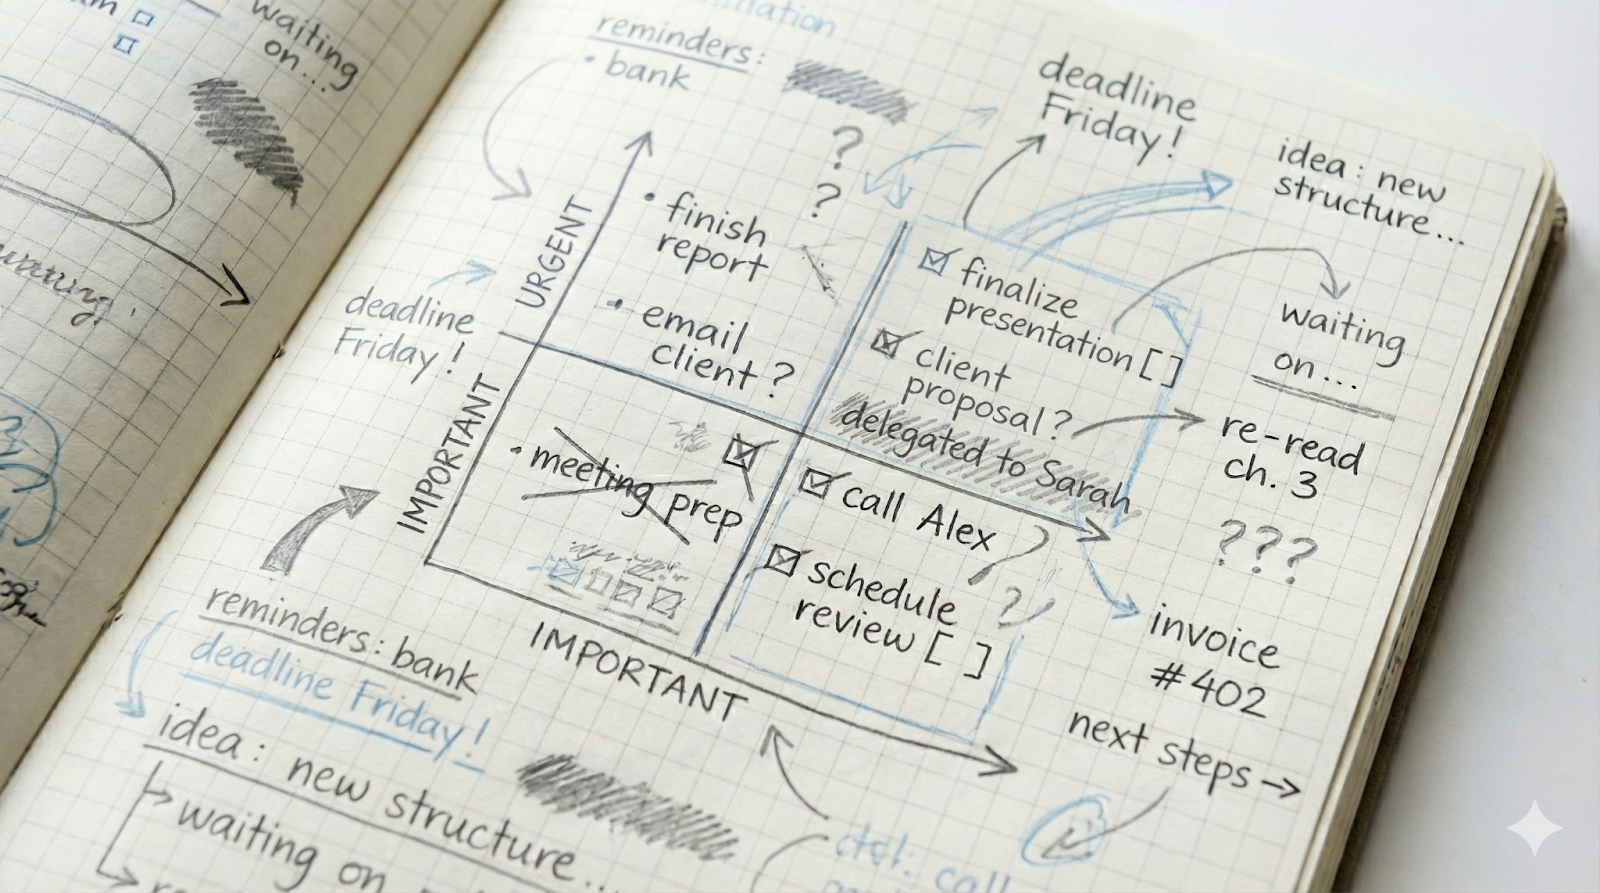 waiting
on...
reminders:
• bank
deadline
Friday!
idea: new
structure...
?
?
• finish
report
• email
client ?
URGENT
deadline
Friday!
finalize
presentation [ ]
client
proposal?
delegated to Sarah
waiting
on...
re-read
ch. 3
???
IMPORTANT
• meeting prep
call Alex ?
schedule ?
review [ ]
invoice
#402
IMPORTANT
next steps →
reminders: bank
deadline Friday!
idea: new structure...
waiting on
call